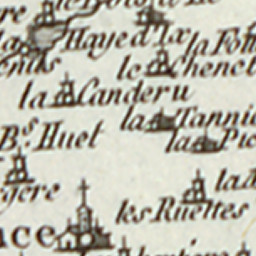 la Haye d'Ix
la Foll
le Chenet
la Canderu
la Tannie
Bs Huet
la Pic
la
gere
les Rüettes
ace